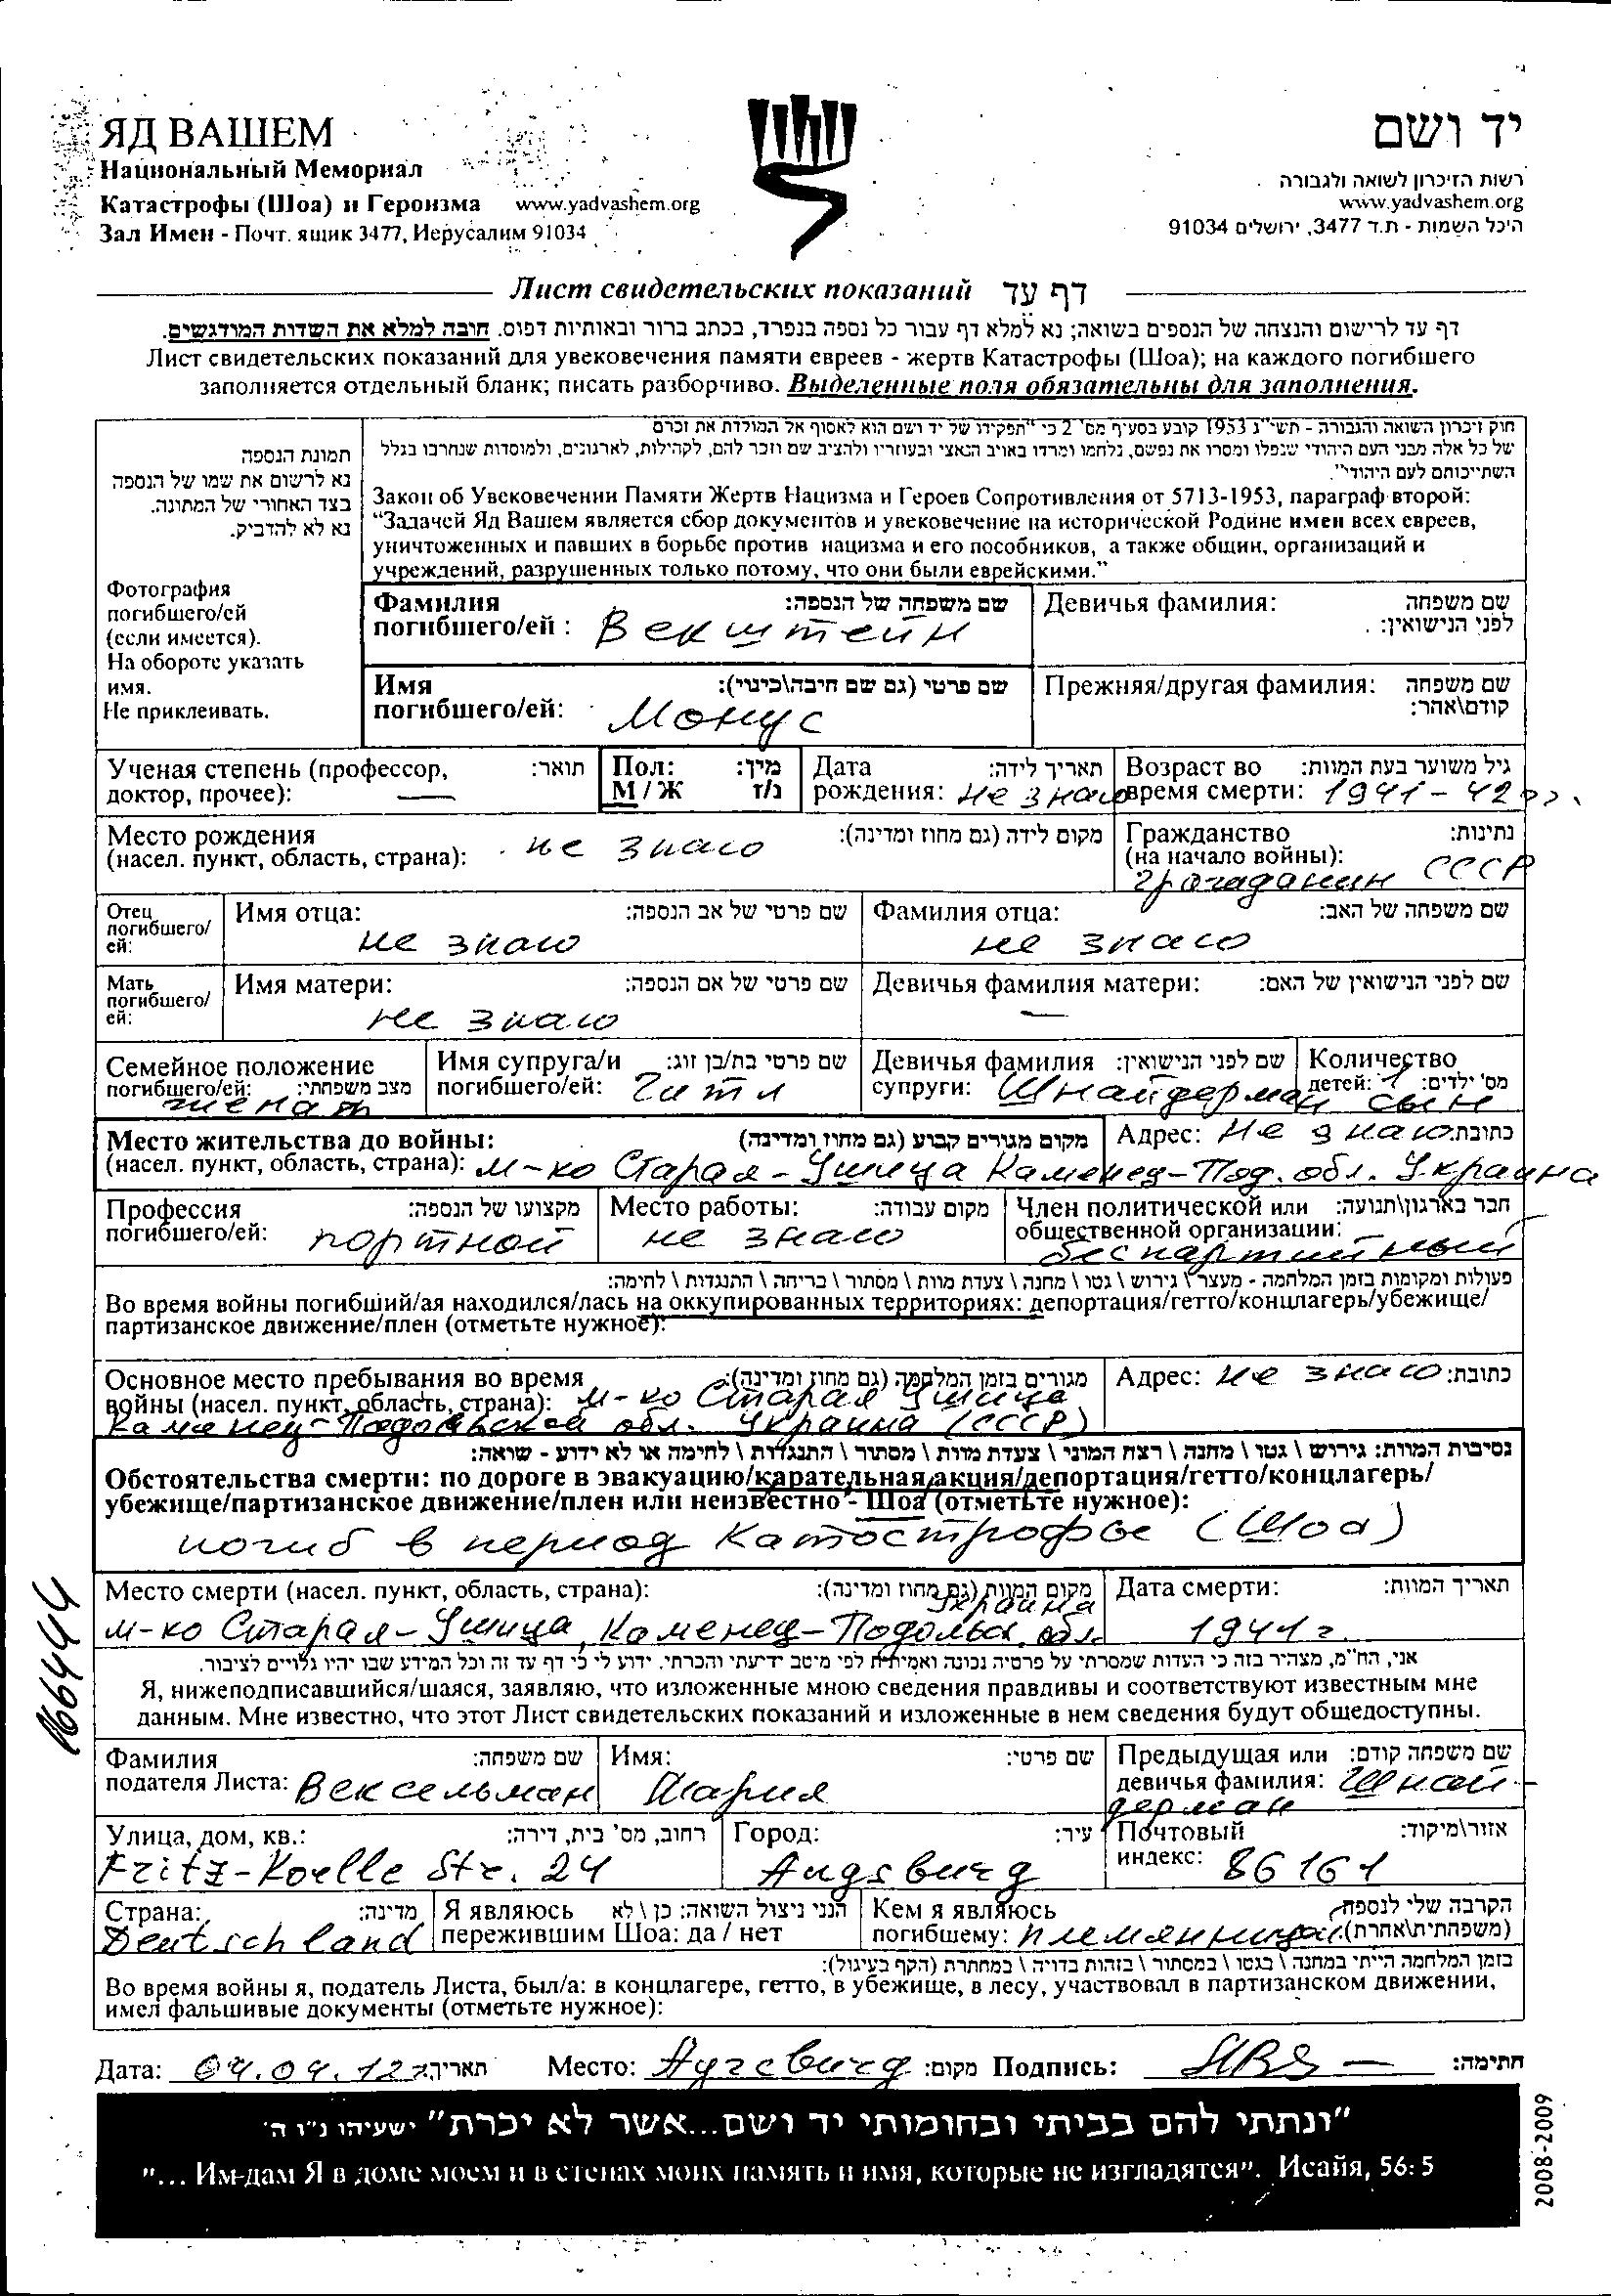 ЯД ВАШЕМ
Национальный Мемориал
Катастрофы (Шоа) и Героизма www.yadvashem.org
Зал Имен - Почт. ящик 3477, Иерусалим 91034
יד ושם
רשות הזיכרון לשואה ולגבורה
www.yadvashem.org
היכל השמות - ת.ד 3477, ירושלים 91034
Лист свидетельских показаний דף עד
דף עד לרישום והנצחה של הנספים בשואה; נא למלא דף עבור כל נספה בנפרד, בכתב ברור ובאותיות דפוס. חובה למלא את השדות המודגשים.
Лист свидетельских показаний для увековечения памяти евреев - жертв Катастрофы (Шоа); на каждого погибшего
заполняется отдельный бланк; писать разборчиво. Выделенные поля обязательны для заполнения.
תמונת הנספה
נא לרשום את שמו של הנספה
בצד האחורי של התמונה.
נא לא להדביק.
Фотография
погибшего/ей
(если имеется).
На обороте указать
имя.
Не приклеивать.
חוק זיכרון השואה והגבורה - תשי"ג 1953 קובע בסעיף מס' 2 כי "תפקידו של יד ושם הוא לאסוף אל המולדת את זכרם
של כל אלה מבני העם היהודי שנפלו ומסרו את נפשם, נלחמו ומרדו באויב הנאצי ובעוזריו ולהציב שם וזכר להם, לקהילות, לארגונים, ולמוסדות שנחרבו בגלל
השתייכותם לעם היהודי".
Закон об Увековечении Памяти Жертв Нацизма и Героев Сопротивления от 5713-1953, параграф второй:
"Задачей Яд Вашем является сбор документов и увековечение на исторической Родине имен всех евреев,
уничтоженных и павших в борьбе против нацизма и его пособников, а также общин, организаций и
учреждений, разрушенных только потому, что они были еврейскими."
Фамилия שם משפחה של הנספה:
погибшего/ей : Векштейн
Девичья фамилия: שם משפחה
לפני הנישואין:
Имя שם פרטי (גם שם חיבה\כינוי):
погибшего/ей: Монус
Прежняя/другая фамилия: שם משפחה
קודם\אחר:
Ученая степень (профессор, תואר:
доктор, прочее): —
Пол: מין:
М / Ж נ/ז
Дата תאריך לידה:
рождения: не знаю
Возраст во גיל משוער בעת המוות:
время смерти: 1941-42гг.
Место рождения מקום לידה (גם מחוז ומדינה):
(насел. пункт, область, страна): не знаю
Гражданство נתינות:
(на начало войны):
гражданин СССР
Отец
погибшего/
ей:
Имя отца: שם פרטי של אב הנספה:
не знаю
Фамилия отца: שם משפחה של האב:
не знаю
Мать
погибшего/
ей:
Имя матери: שם פרטי של אם הנספה:
не знаю
Девичья фамилия матери: שם לפני הנישואין של האם:
—
Семейное положение
погибшего/ей: מצב משפחתי:
женат
Имя супруга/и שם פרטי בת/בן זוג:
погибшего/ей: Гитл
Девичья фамилия שם לפני הנישואין:
супруги: Шнайдерман
Количество
детей: 1 מס' ילדים:
сын
Место жительства до войны: מקום מגורים קבוע (גם מחוז ומדינה)
(насел. пункт, область, страна): м-ко Старая-Ушица Каменец-Под. обл. Украина
Адрес: Не знаю כתובת:
Профессия מקצועו של הנספה:
погибшего/ей: портной
Место работы: מקום עבודה:
не знаю
Член политической или חבר בארגון\תנועה:
общественной организации:
беспартийный
פעולות ומקומות בזמן המלחמה - מעצר \ גירוש \ גטו \ מחנה \ צעדת מוות \ מסתור \ בריחה \ התנגדות \ לחימה:
Во время войны погибший/ая находился/лась на оккупированных территориях: депортация/гетто/концлагерь/убежище/
партизанское движение/плен (отметьте нужное):
Основное место пребывания во время מגורים בזמן המלחמה (גם מחוז ומדינה):
войны (насел. пункт, область, страна): м-ко Старая Ушица
Каменец-Подольской обл. Украина (СССР)
Адрес: не знаю כתובת:
נסיבות המוות: גירוש \ גטו \ מחנה \ רצח המוני \ צעדת מוות \ מסתור \ התנגדות \ לחימה או לא ידוע - שואה:
Обстоятельства смерти: по дороге в эвакуацию/карательная акция/депортация/гетто/концлагерь/
убежище/партизанское движение/плен или неизвестно - Шоа (отметьте нужное):
погиб в период Катострофы (Шоа)
Место смерти (насел. пункт, область, страна): מקום המוות (גם מחוז ומדינה):
Украина
м-ко Старая-Ушица, Каменец-Подольск. обл.
Дата смерти: תאריך המוות:
1941г.
166444
אני, הח"מ, מצהיר בזה כי העדות שמסרתי על פרטיה נכונה ואמיתית לפי מיטב ידיעתי והכרתי. ידוע לי כי דף עד זה וכל המידע שבו יהיו גלויים לציבור.
Я, нижеподписавшийся/шаяся, заявляю, что изложенные мною сведения правдивы и соответствуют известным мне
данным. Мне известно, что этот Лист свидетельских показаний и изложенные в нем сведения будут общедоступны.
Фамилия שם משפחה:
подателя Листа: Вексельман
Имя: שם פרטי:
Мария
Предыдущая или שם משפחה קודם:
девичья фамилия: Шнай-
дерман
Улица, дом, кв.: רחוב, מס' בית, דירה:
Fritz-Koelle Str. 24
Город: עיר:
Augsburg
Почтовый אזור\מיקוד:
индекс: 86161
Страна: מדינה:
Deutschland
Я являюсь הנני ניצול השואה: כן \ לא
пережившим Шоа: да / нет
Кем я являюсь הקרבה שלי לנספה
погибшему: племянницей (משפחתית\אחרת):
בזמן המלחמה הייתי במחנה \ בגטו \ במסתור \ בזהות בדויה \ במחתרת (הקף בעיגול):
Во время войны я, податель Листа, был/а: в концлагере, гетто, в убежище, в лесу, участвовал в партизанском движении,
имел фальшивые документы (отметьте нужное):
Дата: 04.04.12г. תאריך: Место: Аугсбург מקום: Подпись: חתימה:
"ונתתי להם בביתי ובחומותי יד ושם...אשר לא יכרת" ישעיהו נ"ו ה'
"... Им-дам Я в доме моем и в стенах моих память и имя, которые не изгладятся". Исайя, 56: 5
2008-2009